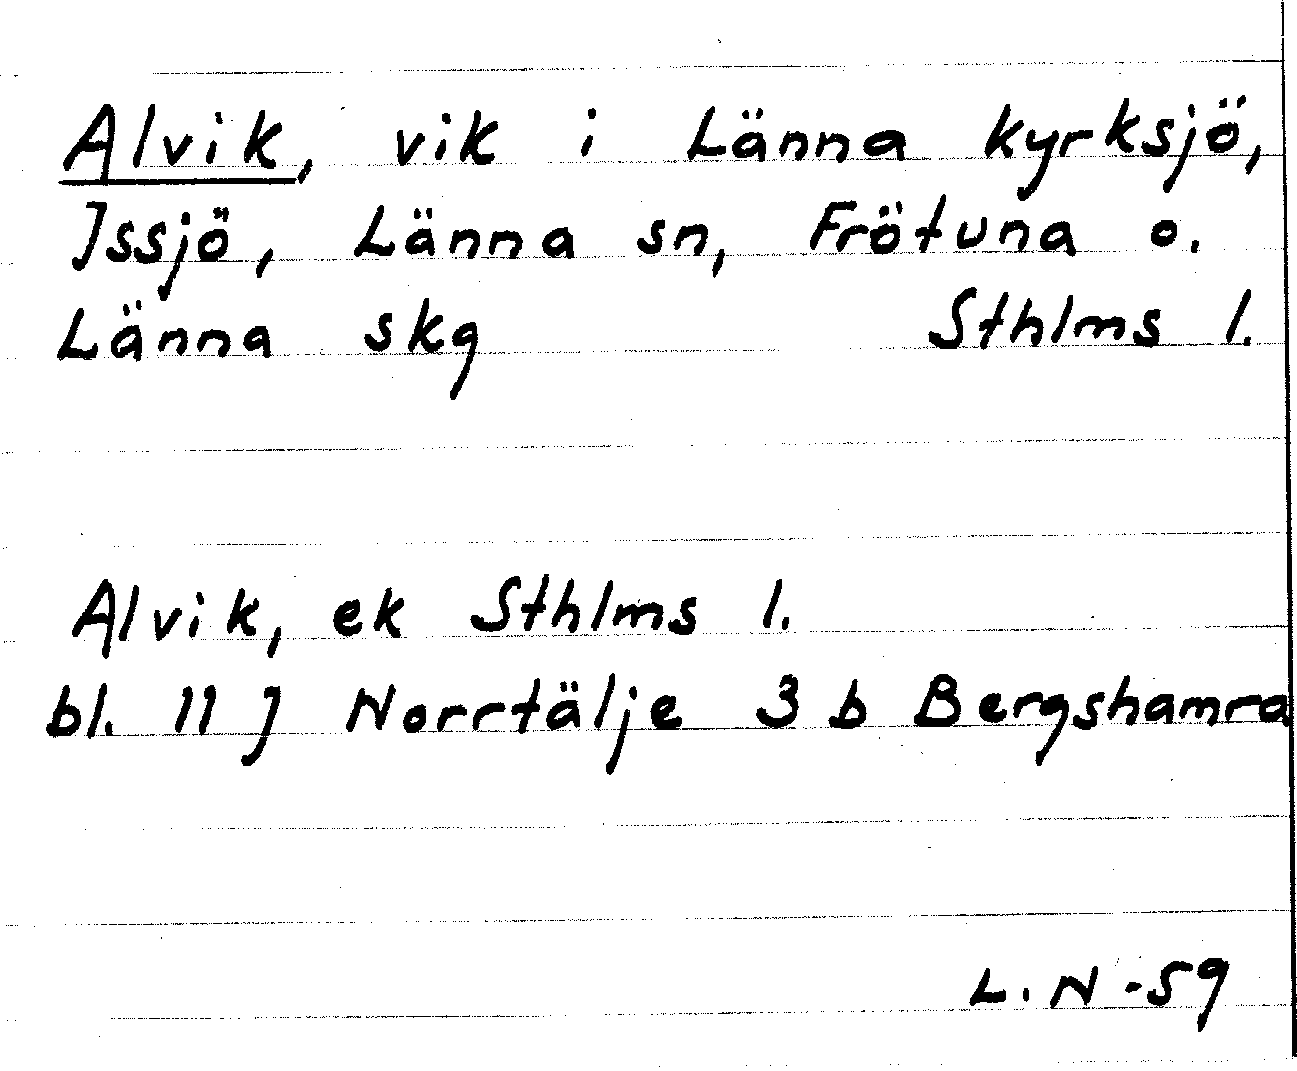 Alvik, vik i Länna kyrksjö,
Issjö, Länna sn, Frötuna o.
Länna skg Sthlms l.
Alvik, ek Sthlms l.
bl. 11 J Norrtälje 3 b Bergshamra
L. N -59